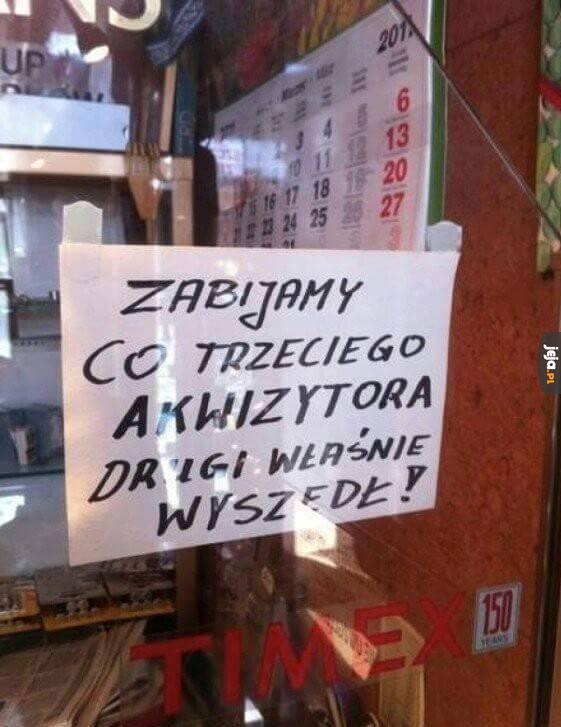 UP
2011
Marzec
6
3 4
13
10 11 12
20
16 17 18 19
27
22 23 24 25 26
31
ZABIJAMY
CO TRZECIEGO
AKWIZYTORA
DRUGI WŁAŚNIE
WYSZEDŁ!
jeja.PL
TIMEX
150
YEARS